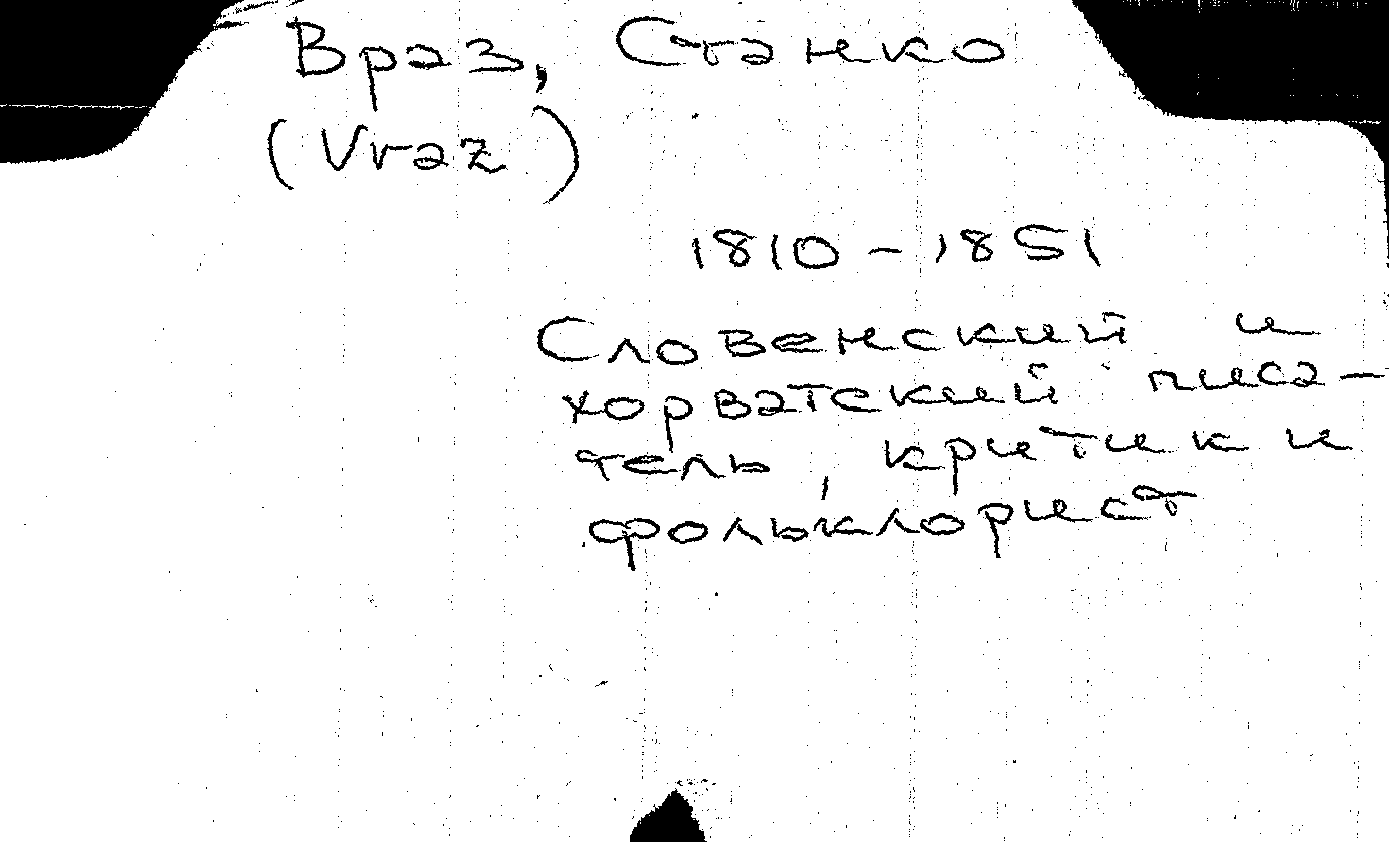 Враз, Станко
(Vraz)
1810-1851
Словенский и
хорватский писа-
тель, критик и
фольклорист